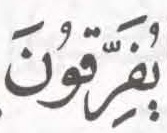 يُفَرِّقُونَ